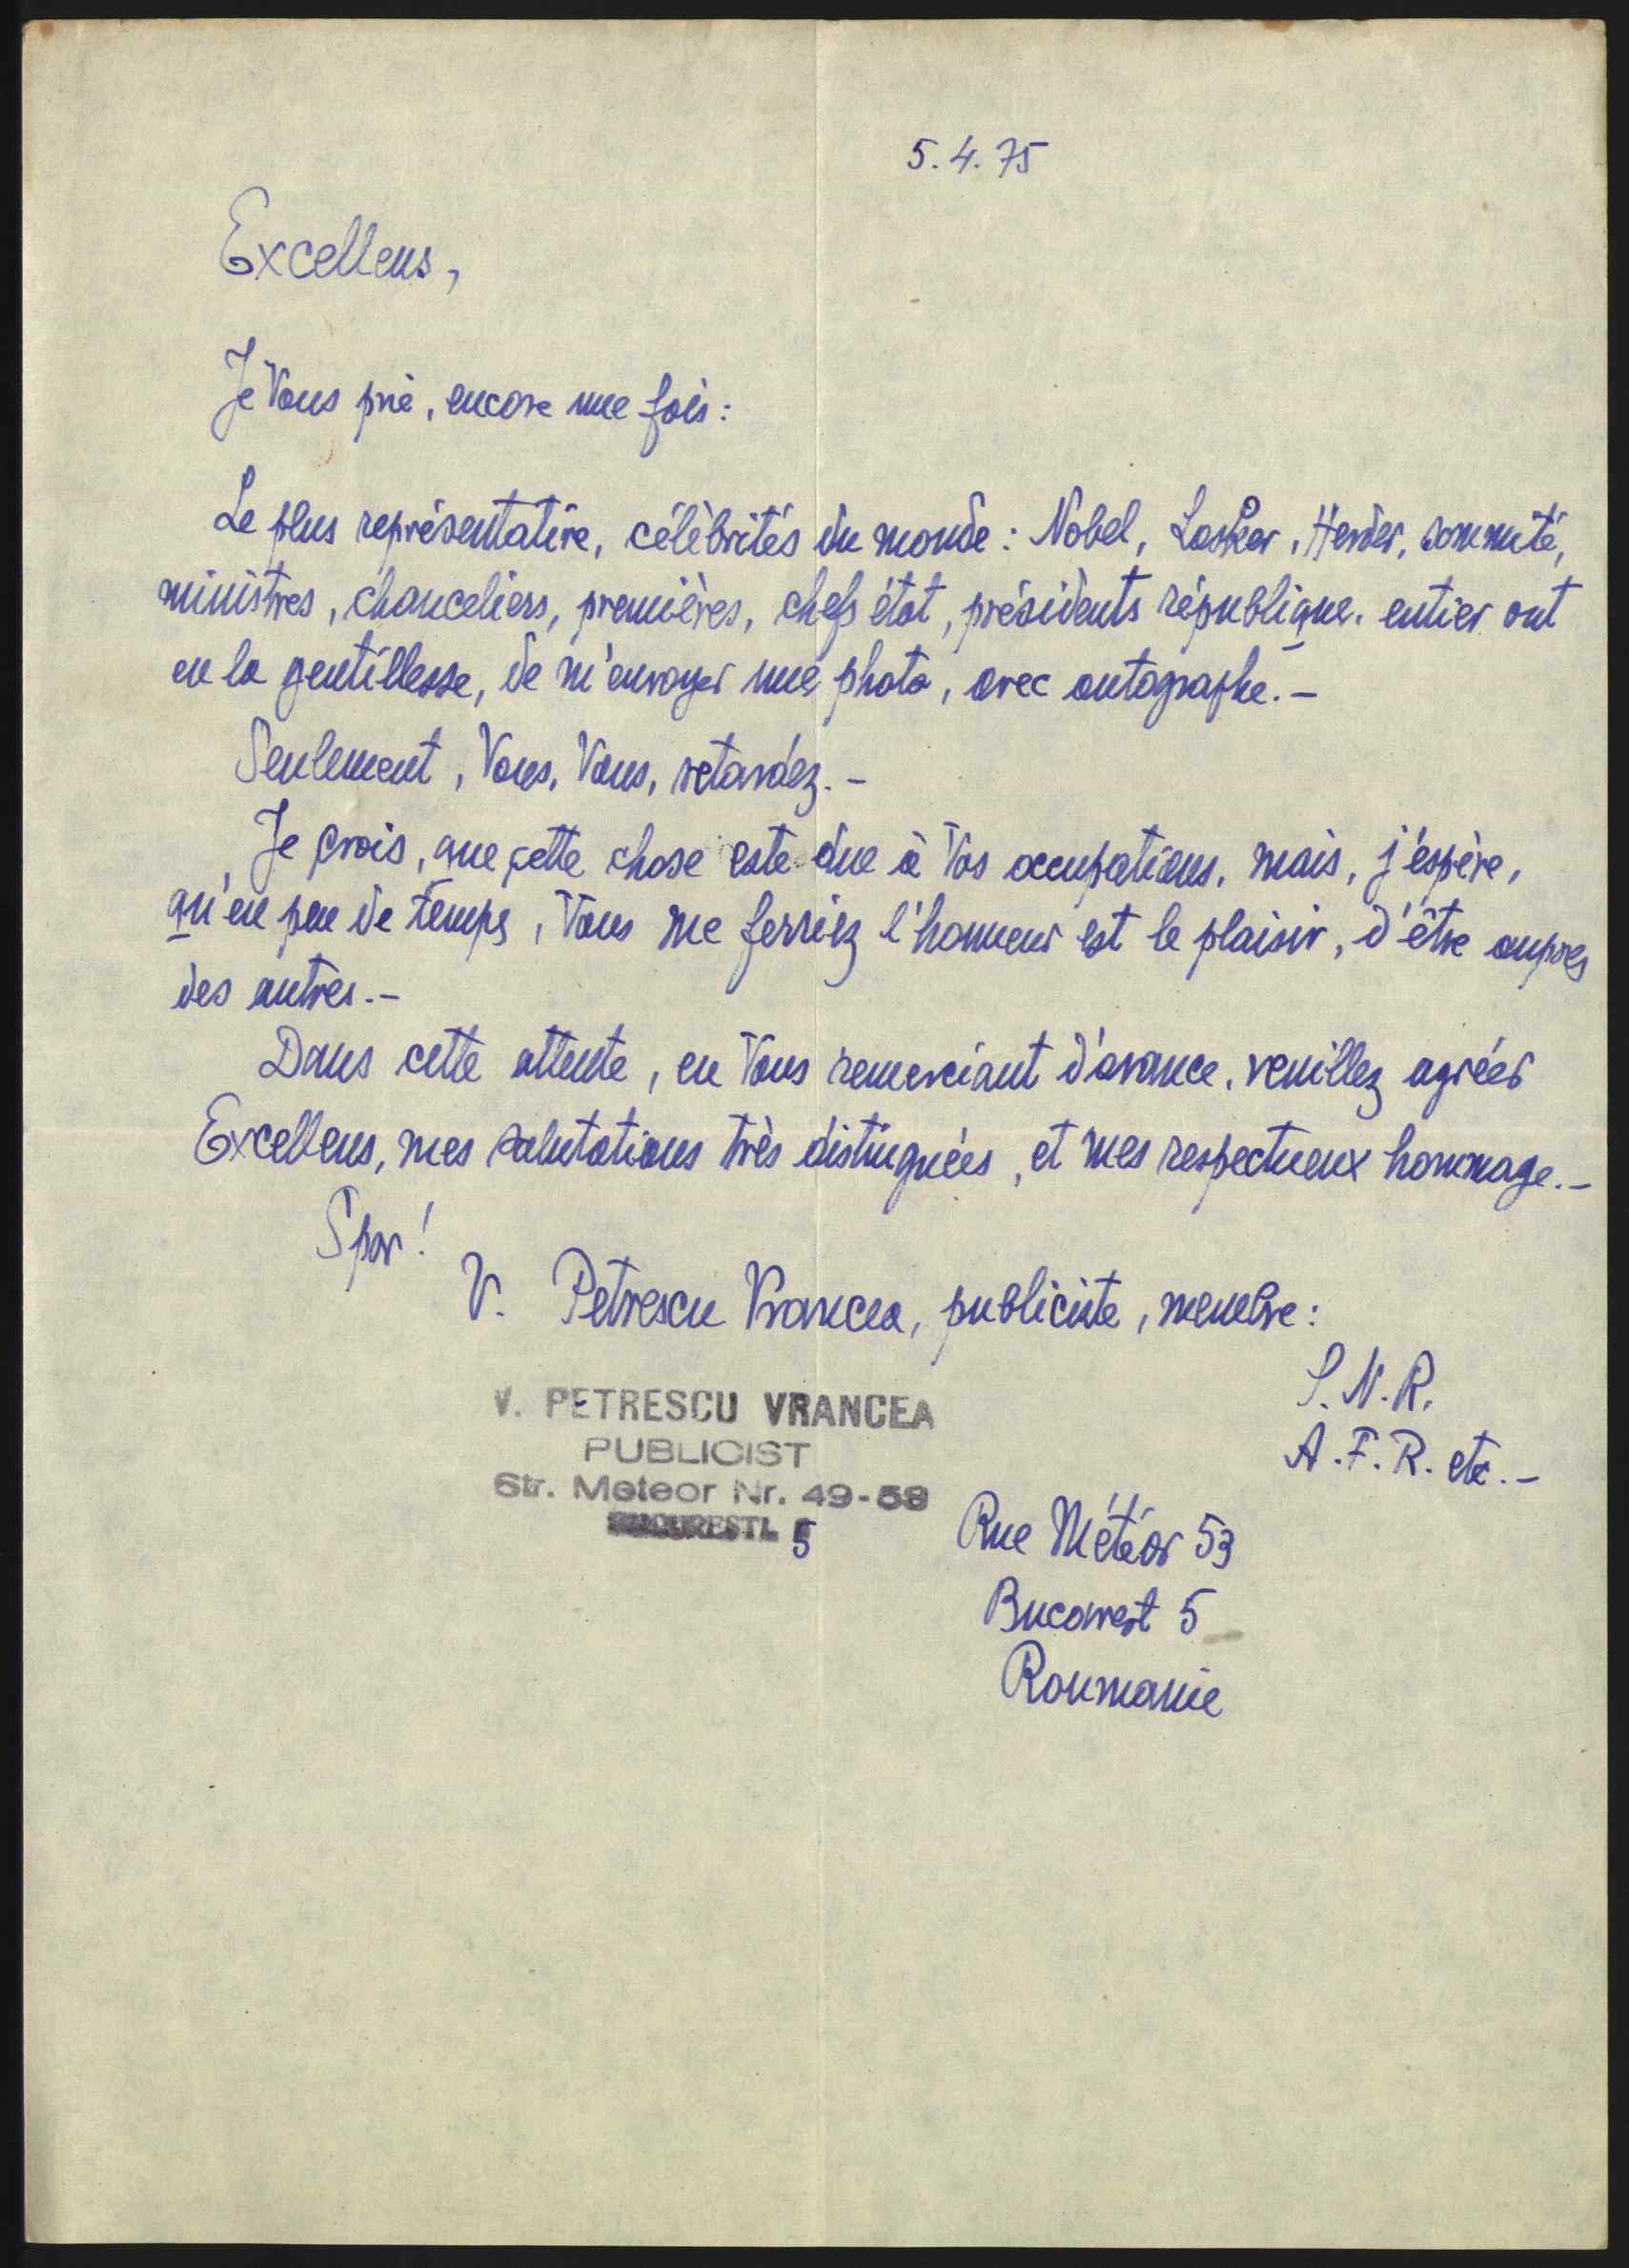 5.4.75
Excellens,
Je Vous prie, encore une fois:
Le plus représentative, célèbrités du monde: Nobel, Lasker, Herder, sommité,
ministres, chanceliers, premières, chefs état, présidents républigue. entier ont
eu la gentillesse, de m'envoyer une photo, avec autographe.-
Seulement, Vous, Vous, retardéz.-
Je crois, que cette chose este due à Vos occupations, mais, j'éspère,
qu'en peu de temps, Vous me ferriez l'honneur est le plaisir, d'être aupres
des autres.-
Dans cette attente, en Vous remerciant d'avance, veuillez agréer
Excellens, mes salutations très distinguées, et mes respectueux hommage.-
V. Petrescu Vrancea, publiciste, membre:
S.N.R.
A.F.R. etc.-
V. PETRESCU VRANCEA
PUBLICIST
Str. Meteor Nr. 49-53
BUCUREȘTI. 5
Rue Météor 53
Bucarest 5
Roumanie